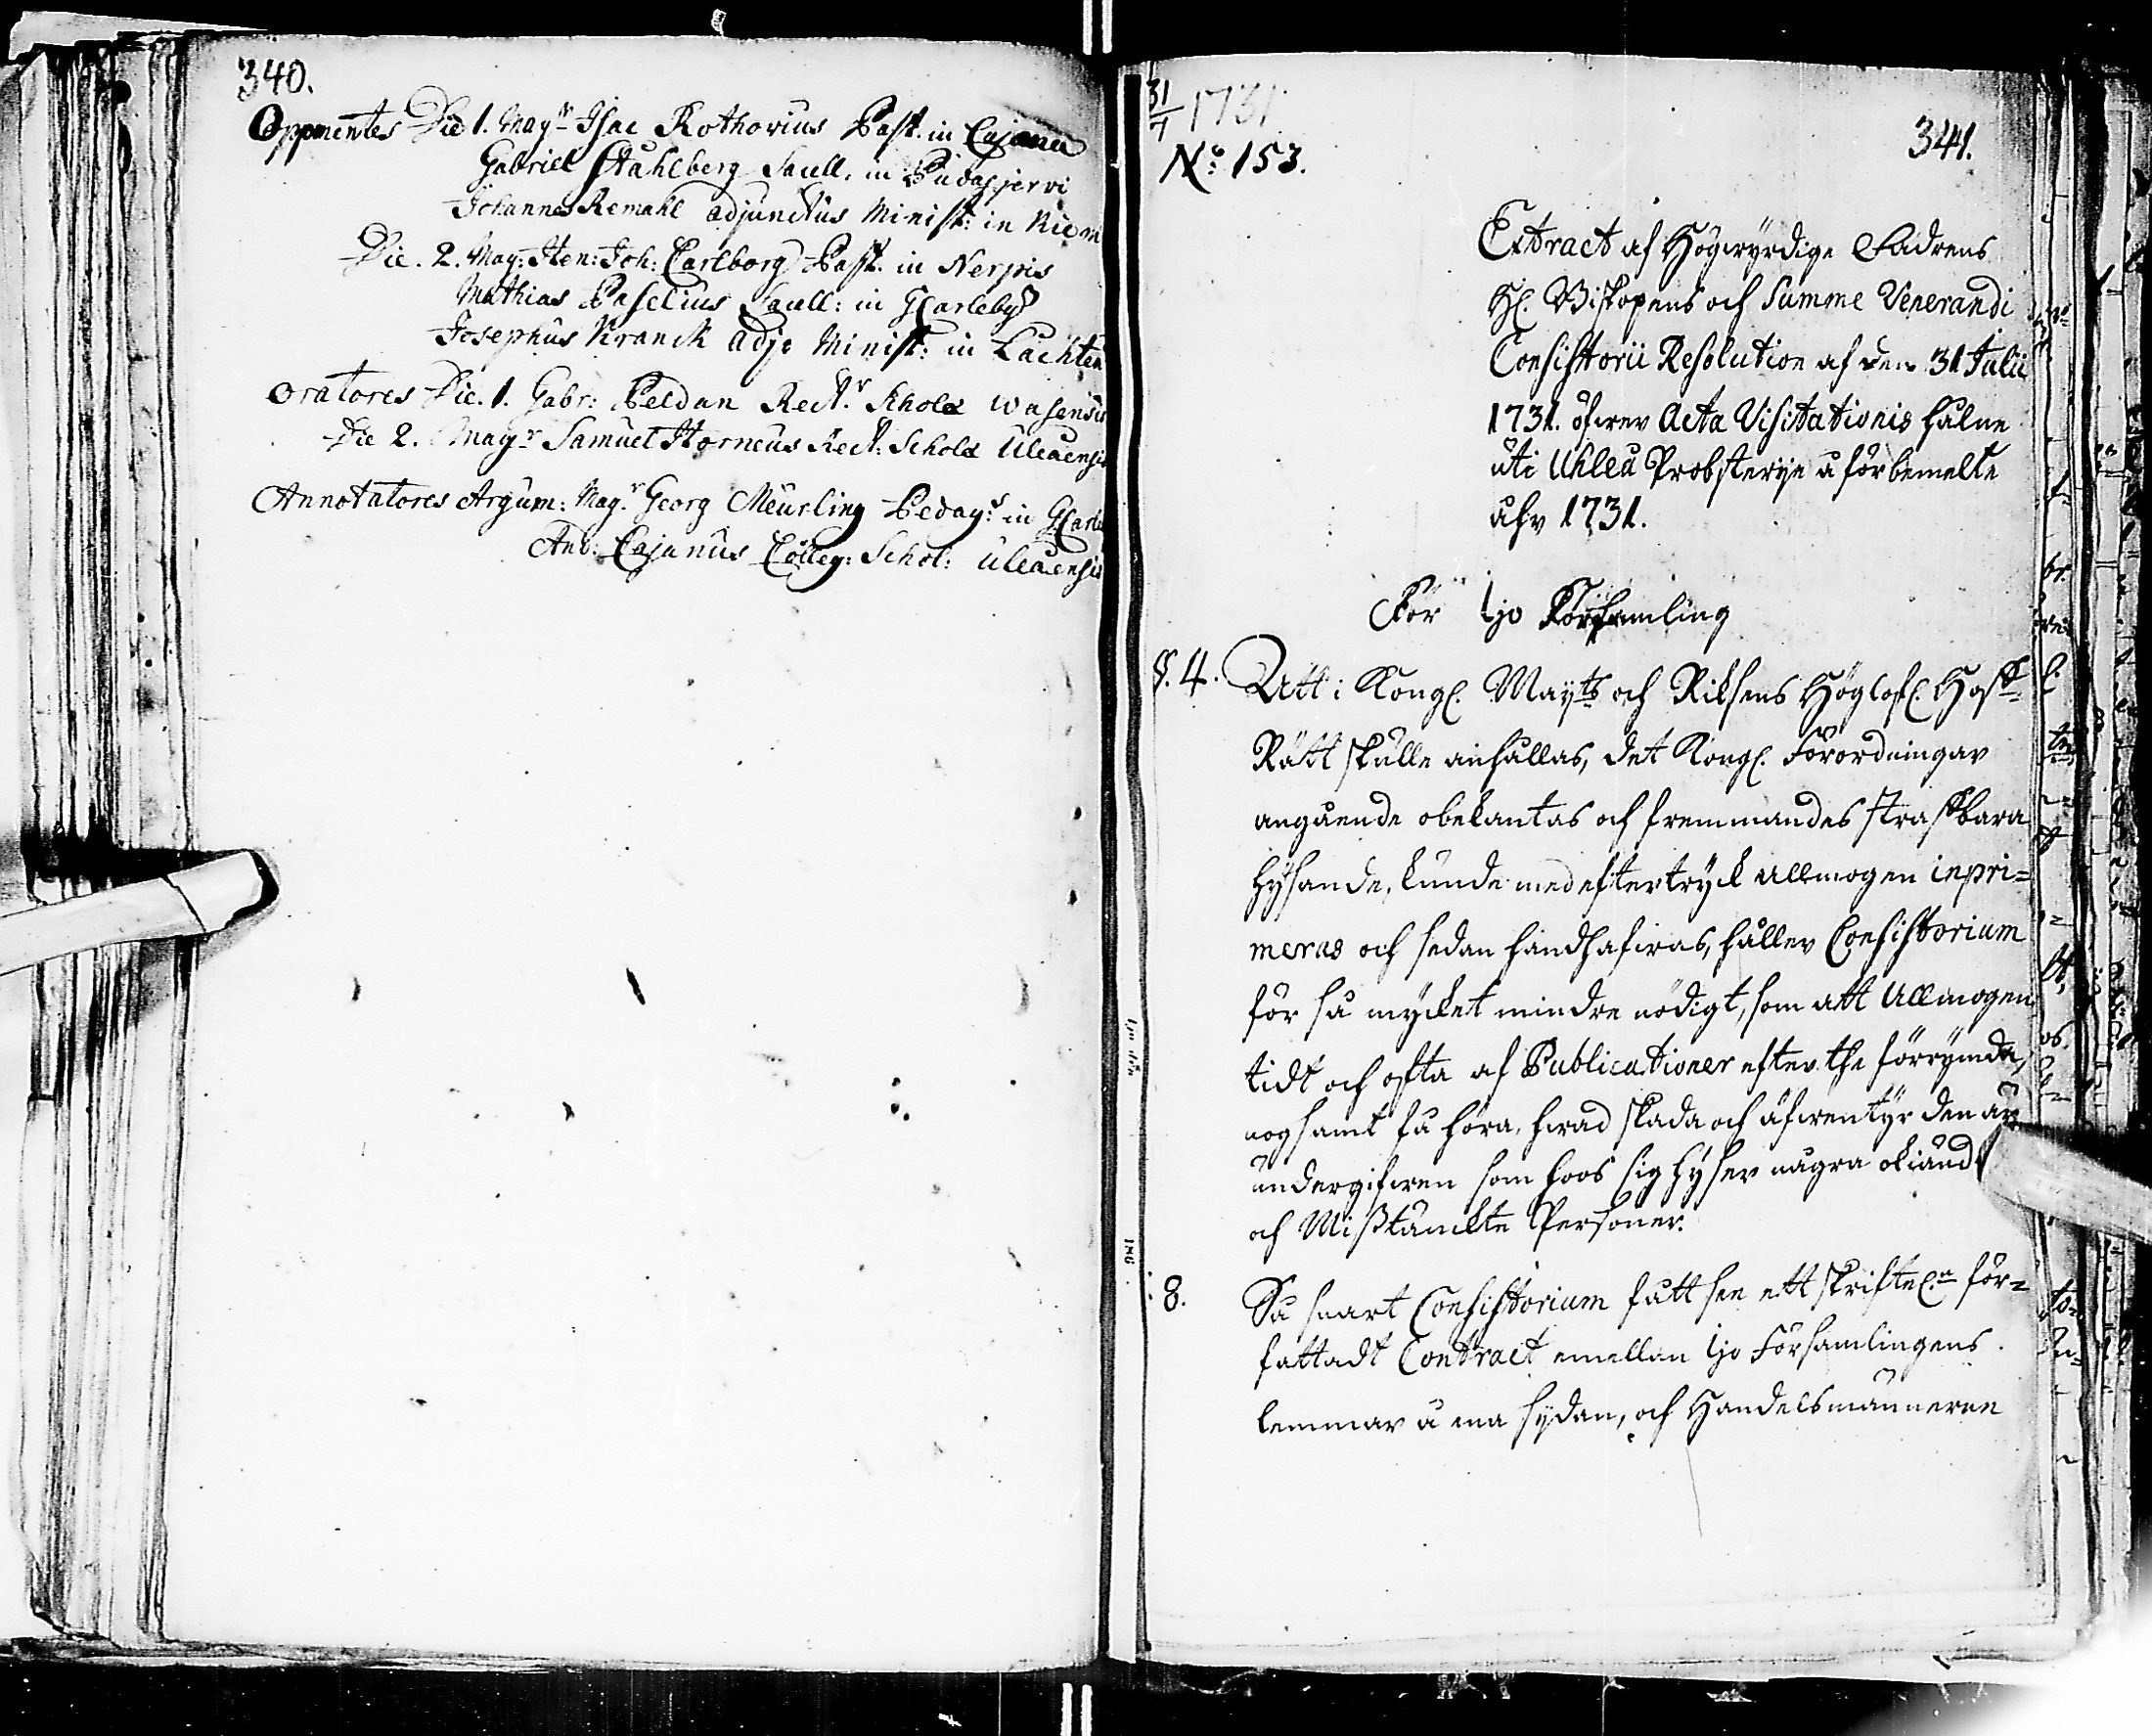 340.
Opponentes Die 1. Mag:r Isac Rothovius Past. in Cajana
Gabriel Ståhlberg Sacell. in Pudasjervi
Johannes Remahl adjunctus Minist: in Kiem
Die. 2. Mag: Sten: Joh: Carlborg Past. in Nerpis
Mathias Paselius Sacell: in GCarleby
Josephus Kranck Adj: Minist: in Lachten
Oratores Die. 1. Gabr: Peldan Rect.r Scholæ Wasensis
Die 2. Mag:r Samuel Horneus Rect: Scholæ Uleaensis
Annotatores Argum: Mag:r Georg Meurling Pedag:s in GCarle
And: Cajanus Colleg: Schol: Uleaensis
31/7 1731
No: 153.
341.
Extract af Högwyrdige Fadrens
H. Biskopens och Summe Venerandi
Consistorii Resolution af den 31 Julii
1731. öfwer Acta Visitationis håldne
uti Uhleå Probsterije åförbemelte
åhr 1731.
För Ijo Församling
§. 4. Att i Kongl. Maijts och Riksens Höglofl. Hoff
Rätt skulle anhållas, det Kongl. Förordningar
angående obekantas och fremmandes straffbara
hysande, kunde med eftertryck allmogen inpri=
meras och sedan handhafwas, håller Consistorium
för så mycket mindre nödigt, som att Allmogen
tidt och ofta af Publicationer efter the förrymda,
nogsamt få höra, hwad skada och äfwentyr den är
undergifwen som hoos sig hyser några okiänd
och Misstänckte Personer.
8. Så snart Consistorium fått see ett skriftel:n för=
fattadt Contract emellan Ijo Församlingens
lemmar å ena sydan, och Handelsmännerne